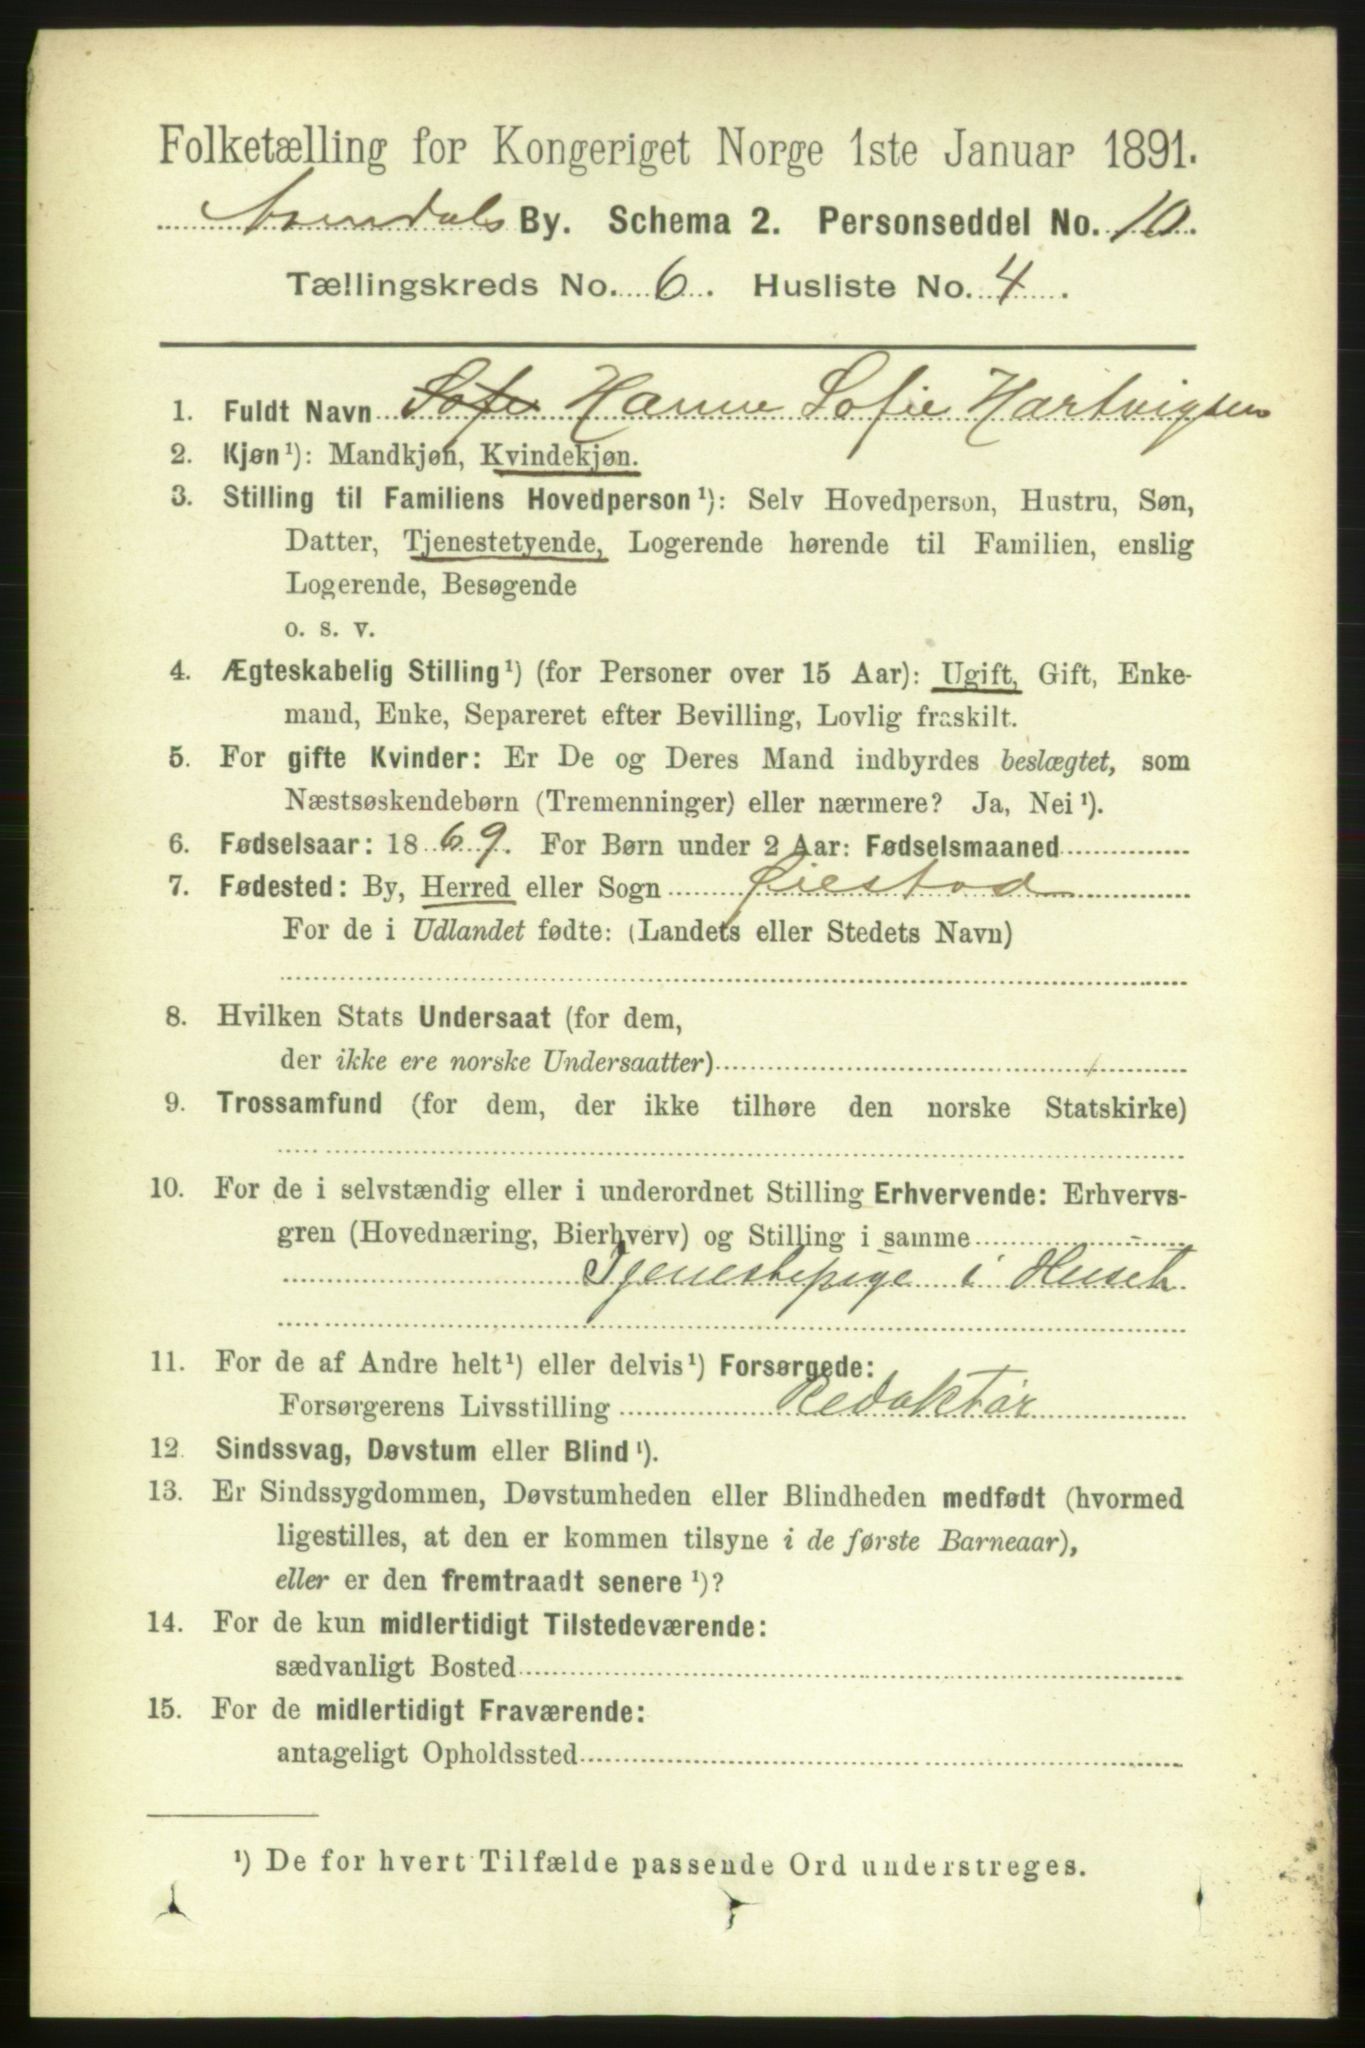 Folketælling for Kongeriget Norge 1ste Januar 1891.
Arendals By. Schema 2. Personseddel No. 10.
Tællingskreds No. 6. Husliste No. 4.
1. Fuldt Navn Sofie Hanne Sofie Hartvigsen
2. Kjøn¹): Mandkjøn, Kvindekjøn.
3. Stilling til Familiens Hovedperson¹): Selv Hovedperson, Hustru, Søn,
Datter, Tjenestetyende, Logerende hørende til Familien, enslig
Logerende, Besøgende
o. s. v.
4. Ægteskabelig Stilling¹) (for Personer over 15 Aar): Ugift, Gift, Enke-
mand, Enke, Separeret efter Bevilling, Lovlig fraskilt.
5. For gifte Kvinder: Er De og Deres Mand indbyrdes beslægtet, som
Næstsøskendebørn (Tremenninger) eller nærmere? Ja, Nei¹).
6. Fødselsaar: 1869. For Børn under 2 Aar: Fødselsmaaned
7. Fødested: By, Herred eller Sogn Øiestad
For de i Udlandet fødte: (Landets eller Stedets Navn)
8. Hvilken Stats Undersaat (for dem,
der ikke ere norske Undersaatter)
9. Trossamfund (for dem, der ikke tilhøre den norske Statskirke)
10. For de i selvstændig eller i underordnet Stilling Erhvervende: Erhvervs-
gren (Hovednæring, Bierhverv) og Stilling i samme
Tjenestepige i Huset
11. For de af Andre helt¹) eller delvis¹) Forsørgede:
Forsørgerens Livsstilling Redaktør
12. Sindssvag, Døvstum eller Blind¹).
13. Er Sindssygdommen, Døvstumheden eller Blindheden medfødt (hvormed
ligestilles, at den er kommen tilsyne i de første Barneaar),
eller er den fremtraadt senere¹)?
14. For de kun midlertidigt Tilstedeværende:
sædvanligt Bosted
15. For de midlertidigt Fraværende:
antageligt Opholdssted
¹) De for hvert Tilfælde passende Ord understreges.